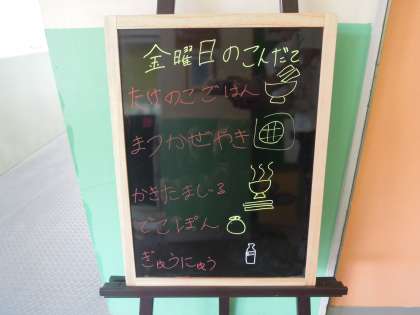 金曜日のこんだて
たけのこごはん
まつかぜやき
かきたまじる
でこぽん
ぎゅうにゅう